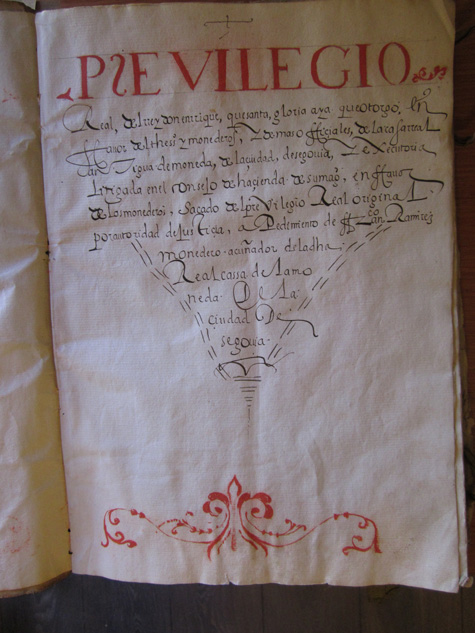 PREVILEGIO
Real, del rey don enrrique, que santa, gloria aya que otorgo, en
ffavor, de el thesso y monederos, y demas officiales, de la cassa real
antigua de moneda, de la ciudad, de segovia, y executoria
litigada en el consejo de hacienda de su magd, en ffavor
de los monederos, sacado de el previlegio Real original
por autoridad de justicia, a Pedimiento de ffranco Ramirez
monedero acuñador de la dha
Real cassa de la mo
neda De La
ciudad De
segovia